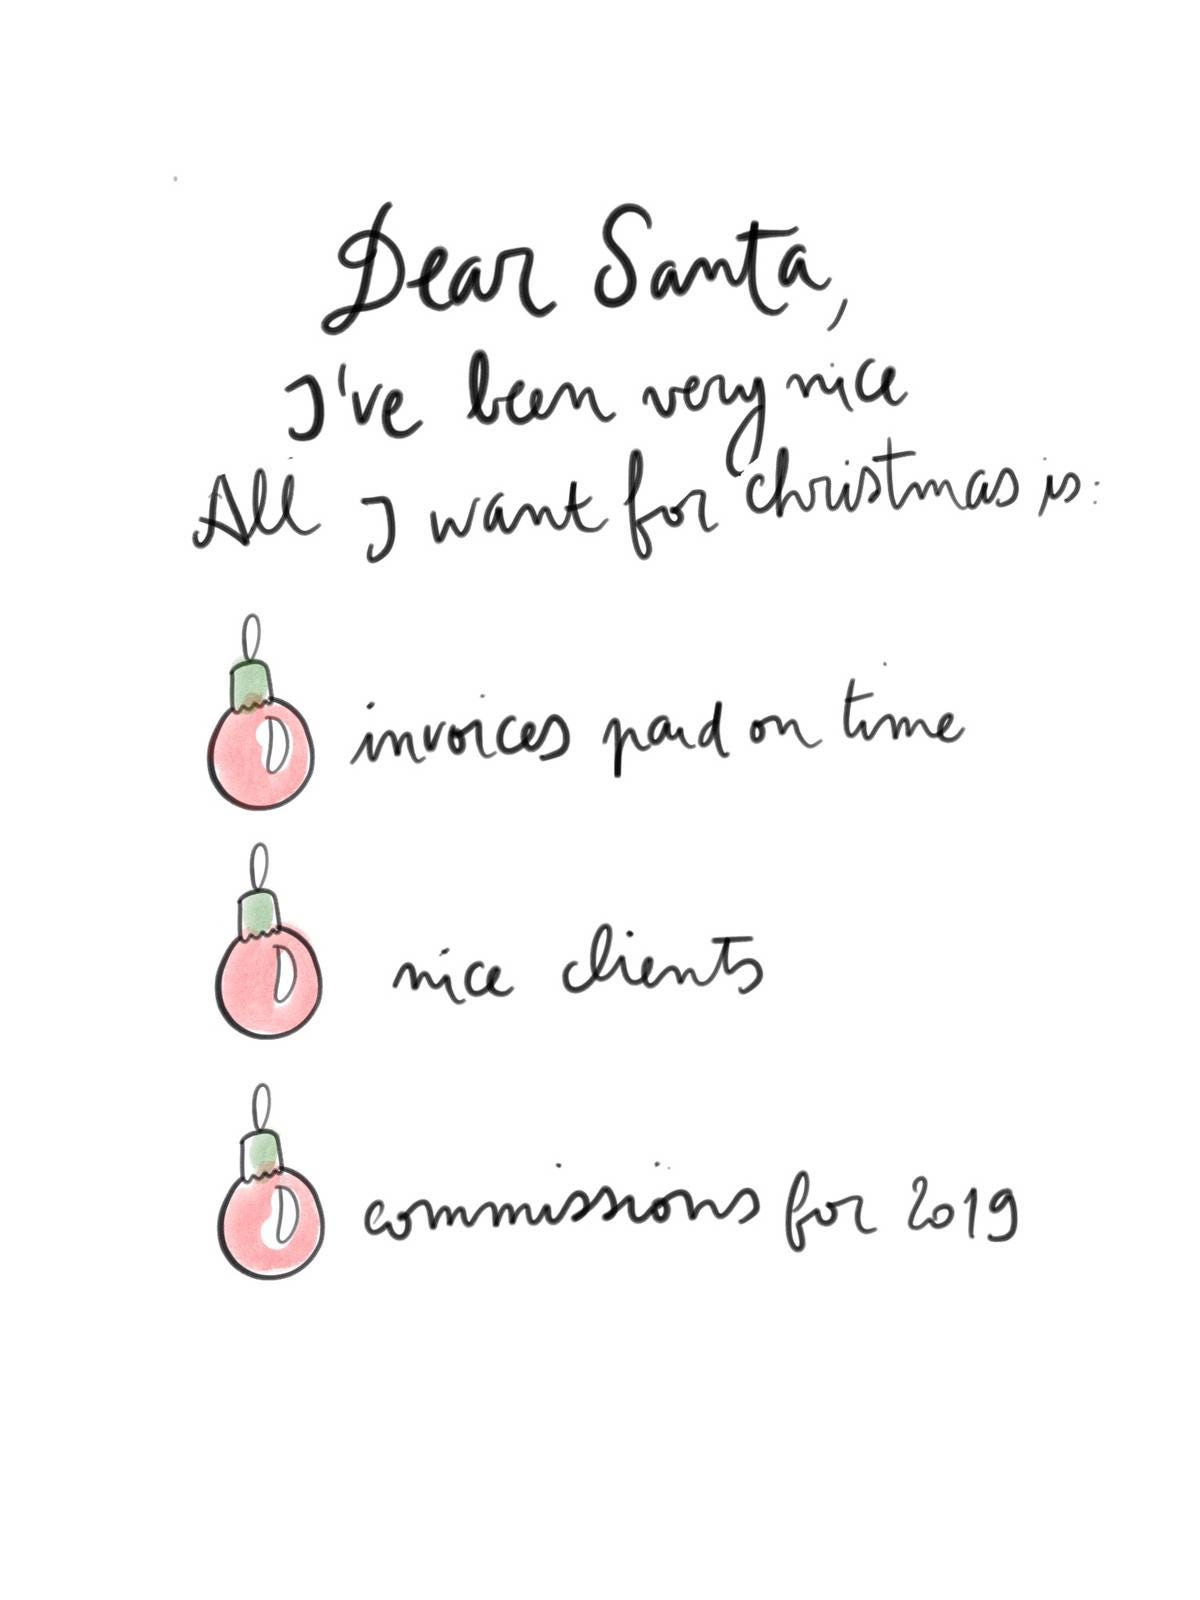 Dear Santa,
I've been very nice
All I want for christmas is:
invoices paid on time
nice clients
commissions for 2019